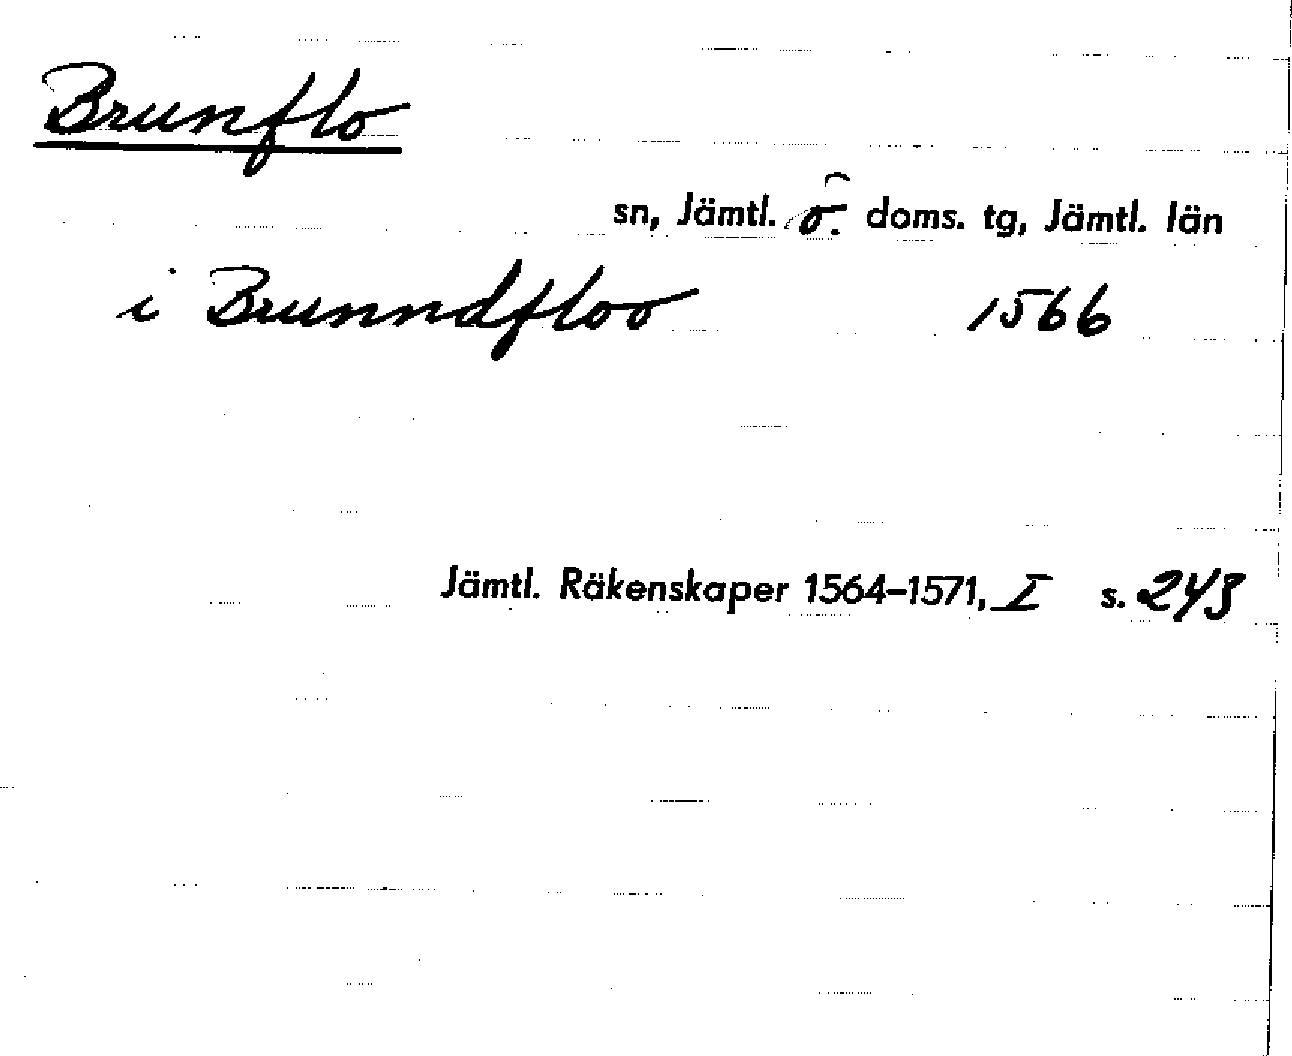 Brunflo
sn, Jämtl. ö. doms. tg, Jämtl. län
i Brunndfloo 1566
Jämtl. Räkenskaper 1564-1571, I s. 243